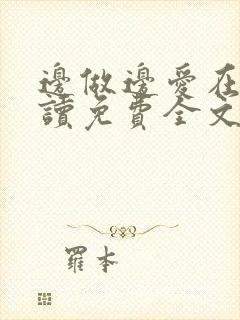 邊做邊愛在
讀免費全文
羅本